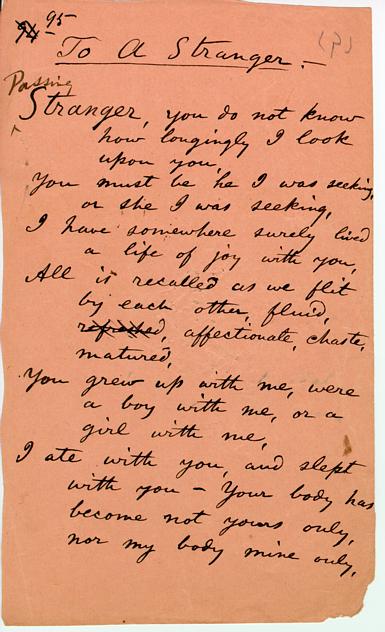 95
(P)
To A Stranger.—
Passing
Stranger, you do not know
how longingly I look
upon you,
You must be he I was seeking,
or she I was seeking,
I have somewhere surely lived
a life of joy with you,
All is recalled as we flit
by each other, fluid,
affectionate, chaste,
matured,
You grew up with me, were
a boy with me, or a
girl with me,
I ate with you, and slept
with you — Your body has
become not yours only,
nor my body mine only,